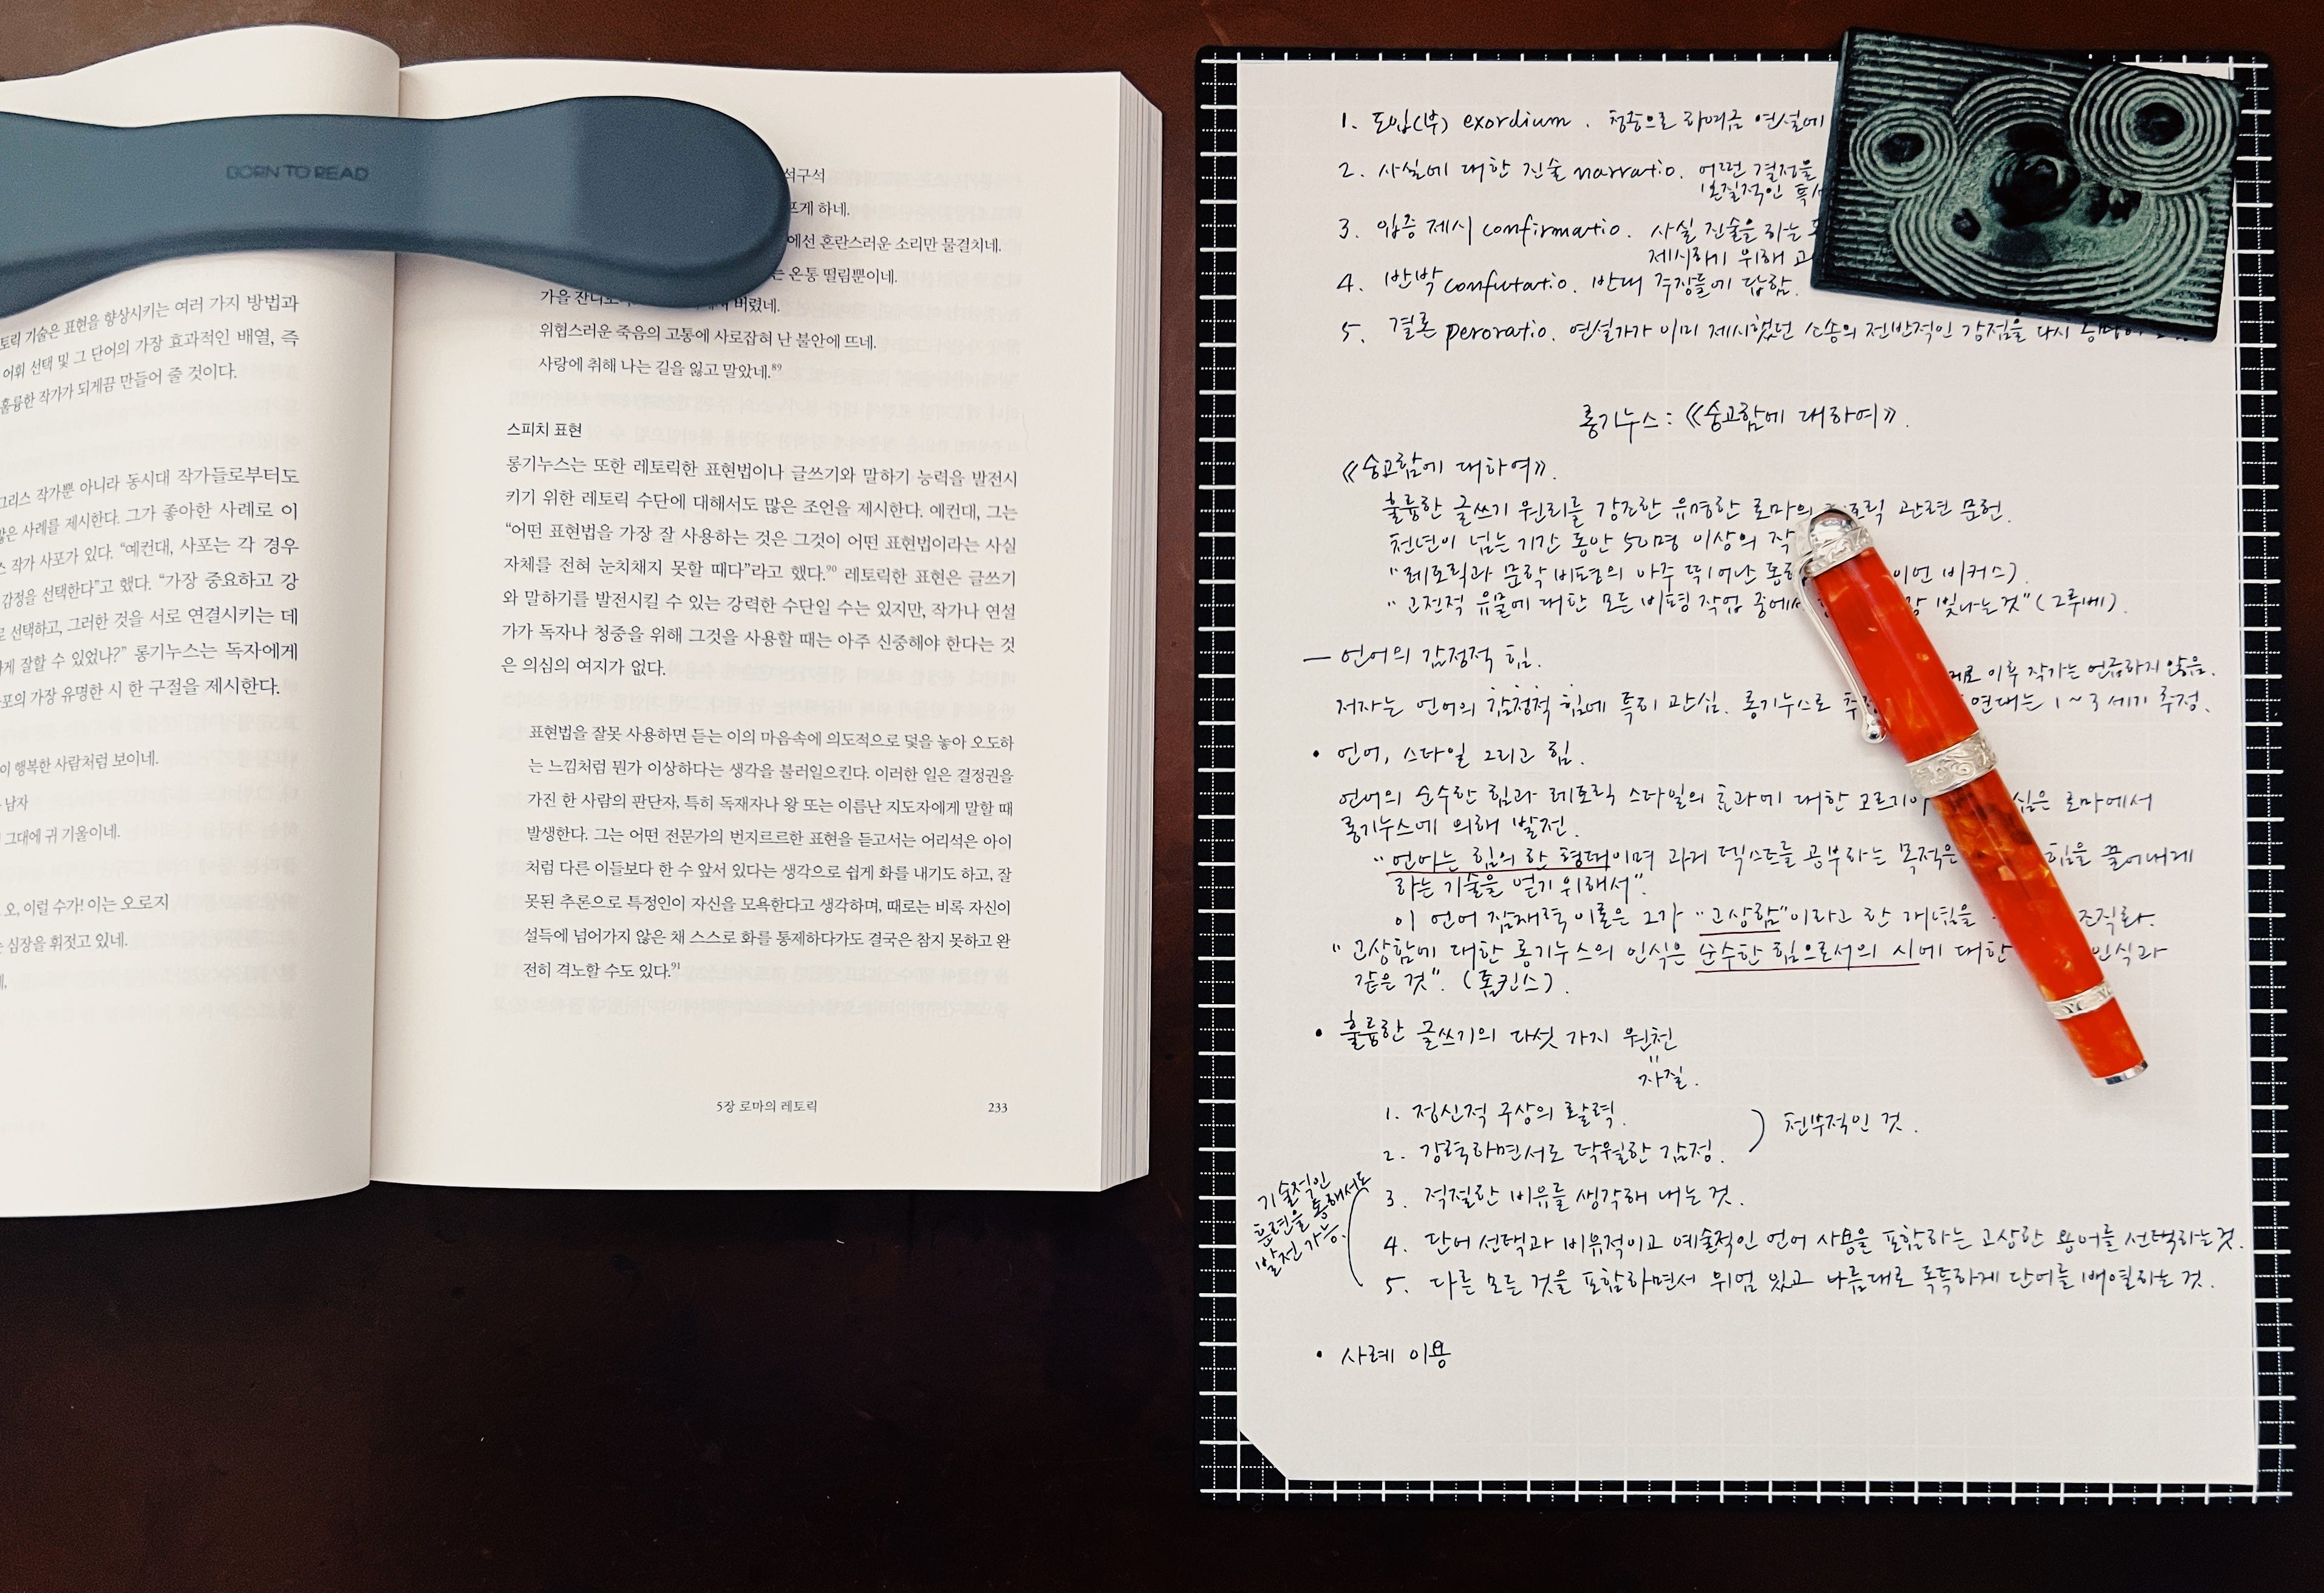 BORN TO READ
토릭 기술은 표현을 향상시키는 여러 가지 방법과
어휘 선택 및 그 단어의 가장 효과적인 배열, 즉
훌륭한 작가가 되게끔 만들어 줄 것이다.
그리스 작가뿐 아니라 동시대 작가들로부터도
많은 사례를 제시한다. 그가 좋아한 사례로 이
스 작가 사포가 있다. “예컨대, 사포는 각 경우
감정을 선택한다”고 했다. “가장 중요하고 강
로 선택하고, 그러한 것을 서로 연결시키는 데
게 잘할 수 있었나?” 롱기누스는 독자에게
포의 가장 유명한 시 한 구절을 제시한다.
이 행복한 사람처럼 보이네.
남자
그대에 귀 기울이네.
오, 이럴 수가! 이는 오로지
심장을 휘젓고 있네.
석구석
프게 하네.
에선 혼란스러운 소리만 물결치네.
는 온통 떨림뿐이네.
버렸네.
위협스러운 죽음의 고통에 사로잡혀 난 불안에 뜨네.
사랑에 취해 나는 길을 잃고 말았네.89
스피치 표현
롱기누스는 또한 레토릭한 표현법이나 글쓰기와 말하기 능력을 발전시
키기 위한 레토릭 수단에 대해서도 많은 조언을 제시한다. 예컨대, 그는
“어떤 표현법을 가장 잘 사용하는 것은 그것이 어떤 표현법이라는 사실
자체를 전혀 눈치채지 못할 때다”라고 했다.90 레토릭한 표현은 글쓰기
와 말하기를 발전시킬 수 있는 강력한 수단일 수는 있지만, 작가나 연설
가가 독자나 청중을 위해 그것을 사용할 때는 아주 신중해야 한다는 것
은 의심의 여지가 없다.
표현법을 잘못 사용하면 듣는 이의 마음속에 의도적으로 덫을 놓아 오도하
는 느낌처럼 뭔가 이상하다는 생각을 불러일으킨다. 이러한 일은 결정권을
가진 한 사람의 판단자, 특히 독재자나 왕 또는 이름난 지도자에게 말할 때
발생한다. 그는 어떤 전문가의 번지르르한 표현을 듣고서는 어리석은 아이
처럼 다른 이들보다 한 수 앞서 있다는 생각으로 쉽게 화를 내기도 하고, 잘
못된 추론으로 특정인이 자신을 모욕한다고 생각하며, 때로는 비록 자신이
설득에 넘어가지 않은 채 스스로 화를 통제하다가도 결국은 참지 못하고 완
전히 격노할 수도 있다.91
5장 로마의 레토릭 233
1. 도입(부) exordium. 청중으로 하여금 연설에
2. 사실에 대한 진술 narratio. 어떤 결정을
본질적인 특
3. 입증 제시 confirmatio. 사실 진술을 하는
제시하기 위해
4. 반박 confutatio. 반대 주장들에 답함.
5. 결론 peroratio. 연설가가 이미 제시했던 소송의 전반적인 강점을 다시
롱기누스: 《숭고함에 대하여》.
《숭고함에 대하여》.
훌륭한 글쓰기 원리를 강조한 유명한 로마의 관련 문헌.
천년이 넘는 기간 동안 50명 이상의 작
“레토릭과 문학 비평의 아주 뛰어난 통 이언 비커스).
“고전적 유물에 대한 모든 비평 작업 중에서 빛나는 것” (그루베).
— 언어의 감정적 힘.
이후 작가는 언급하지 않음.
저자는 언어의 감정적 힘에 특히 관심. 롱기누스로 추 연대는 1~3세기 추정.
• 언어, 스타일 그리고 힘.
언어의 순수한 힘과 레토릭 스타일의 효과에 대한 고르기아 심은 로마에서
롱기누스에 의해 발전.
“언어는 힘의 한 형태이며 과거 텍스트를 공부하는 목적은 힘을 끌어내게
하는 기술을 얻기 위해서”.
이 언어 잠재력 이론은 그가 “고상함”이라고 한 개념을 조직화.
“고상함에 대한 롱기누스의 인식은 순수한 힘으로서의 시에 대한 인식과
같은 것”. (홉킨스).
• 훌륭한 글쓰기의 다섯 가지 원천
"
자질.
1. 정신적 구상의 활력.
2. 강력하면서도 탁월한 감정. ) 천부적인 것.
기술적인
훈련을 통해서도
발전 가능.
3. 적절한 비유를 생각해 내는 것.
4. 단어 선택과 비유적이고 예술적인 언어 사용을 포함하는 고상한 용어를 선택하는 것.
5. 다른 모든 것을 포함하면서 위엄 있고 나름대로 독특하게 단어를 배열하는 것.
• 사례 이용